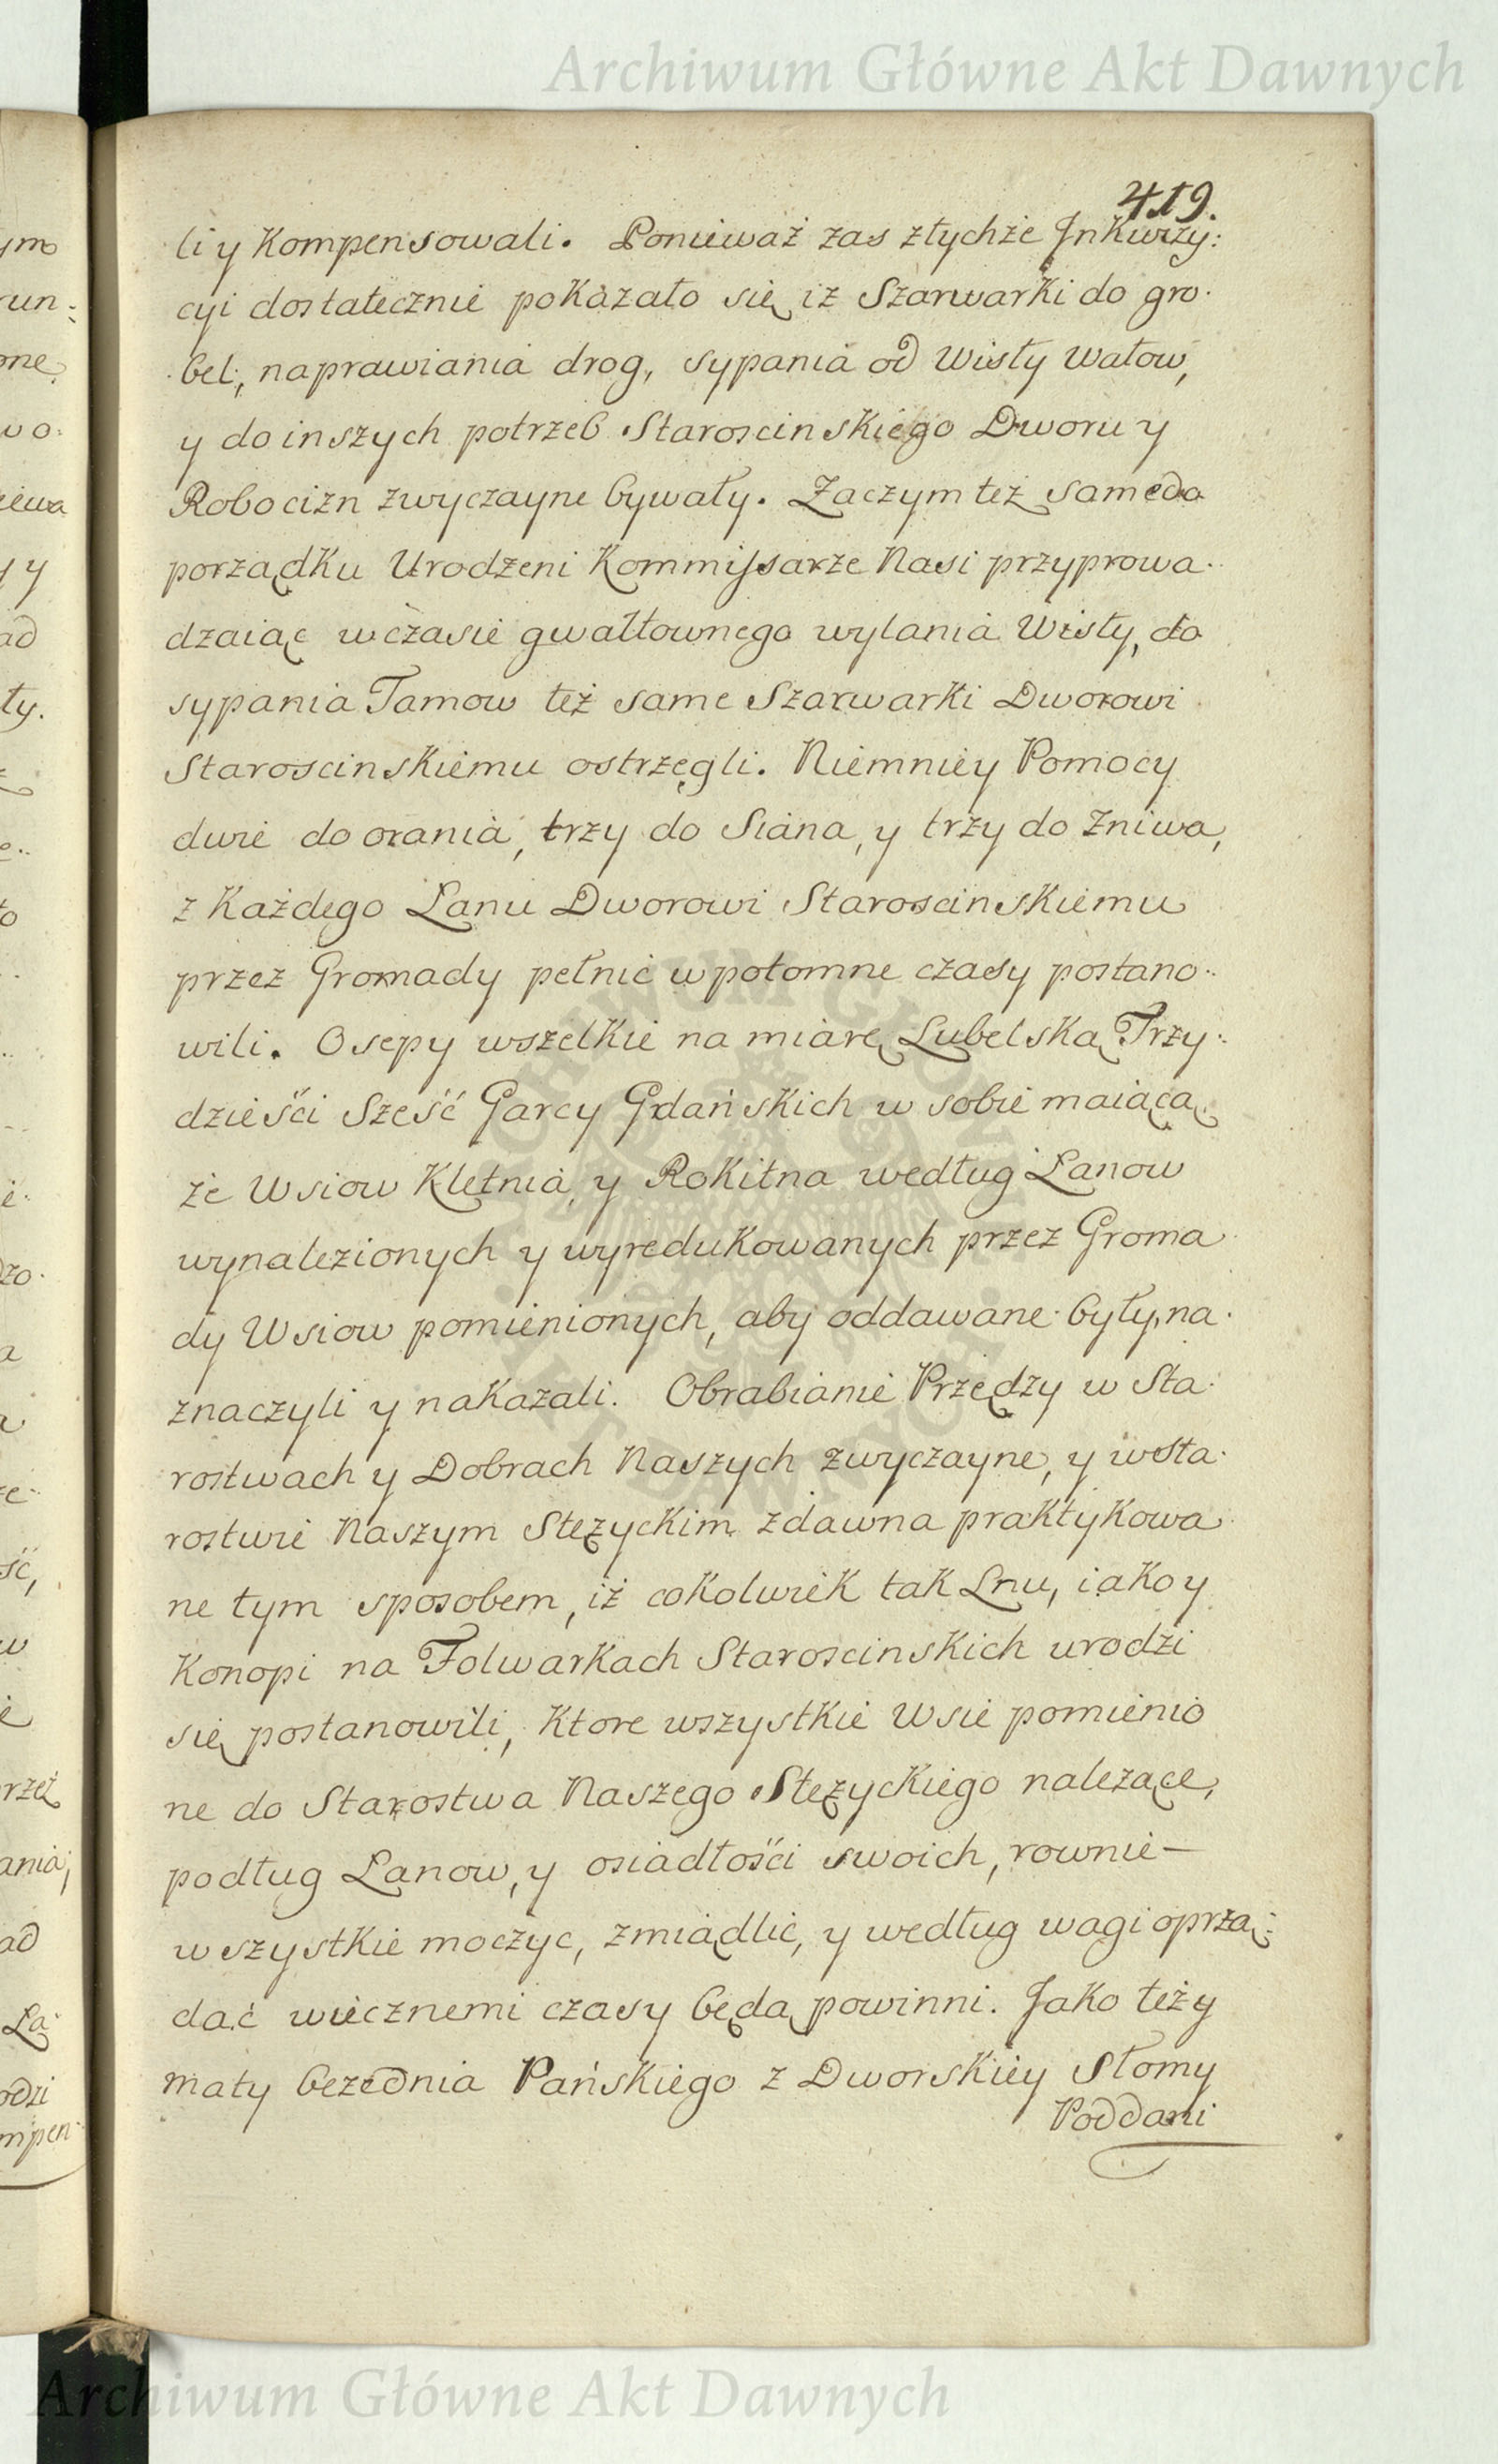 Archiwum Główne Akt Dawnych
419.
li y Kompensowali. Ponieważ zas ztychże Jnkwizy:
cyi dostatecznie pokazało się iż Szarwarki do gro.
bel, naprawiania drog, sypania od Wisły Wałow,
y do inszych potrzeb Staroscinskiego Dworu y
Robocizn zwyczayne bywały. Zaczym też same do
porządku Urodzeni Kommissarze Nasi przyprowa.
dzaiąc w czasie gwałtownego wylania Wisły, do
sypania Tamow też same Szarwarki Dworowi
Staroscinskiemu ostrzegli. Niemniey Pomocy
dwie do orania, trzy do Siana, y trzy do Zniwa,
z Każdego Łanu Dworowi Staroscinskiemu
przez Gromady pełnić w potomne czasy postano..
wili. Osepy wszelkie na miarę Lubelską Trzy.
dzieści Sześć Garcy Gdańskich w sobie maiącą
ze Wsiow Kletnia, y Rokitna według Łanow
wynalezionych y wyredukowanych przez Groma
dy Wsiow pomienionych, aby oddawane były, na.
znaczyli y nakazali. Obrabianie Przędzy w Sta.
rostwach y Dobrach Naszych zwyczayne, y w Sta.
rostwie Naszym Stężyckim zdawna praktykowa
ne tym sposobem, iż cokolwiek tak Lnu, iako y
Konopi na Folwarkach Staroscinskich urodzi
się postanowili, Ktore wszystkie Wsie pomienio
ne do Starostwa Naszego Stężyckiego należące,
podług Łanow, y osiadłości swoich, rownie—
wszystkie moczyc, zmiądlić, y według wagi oprzą:
dać wiecznemi czasy będą powinni. Jako też y
maty bezednia Pańskiego z Dworskiey Słomy
Poddani
Archiwum Główne Akt Dawnych